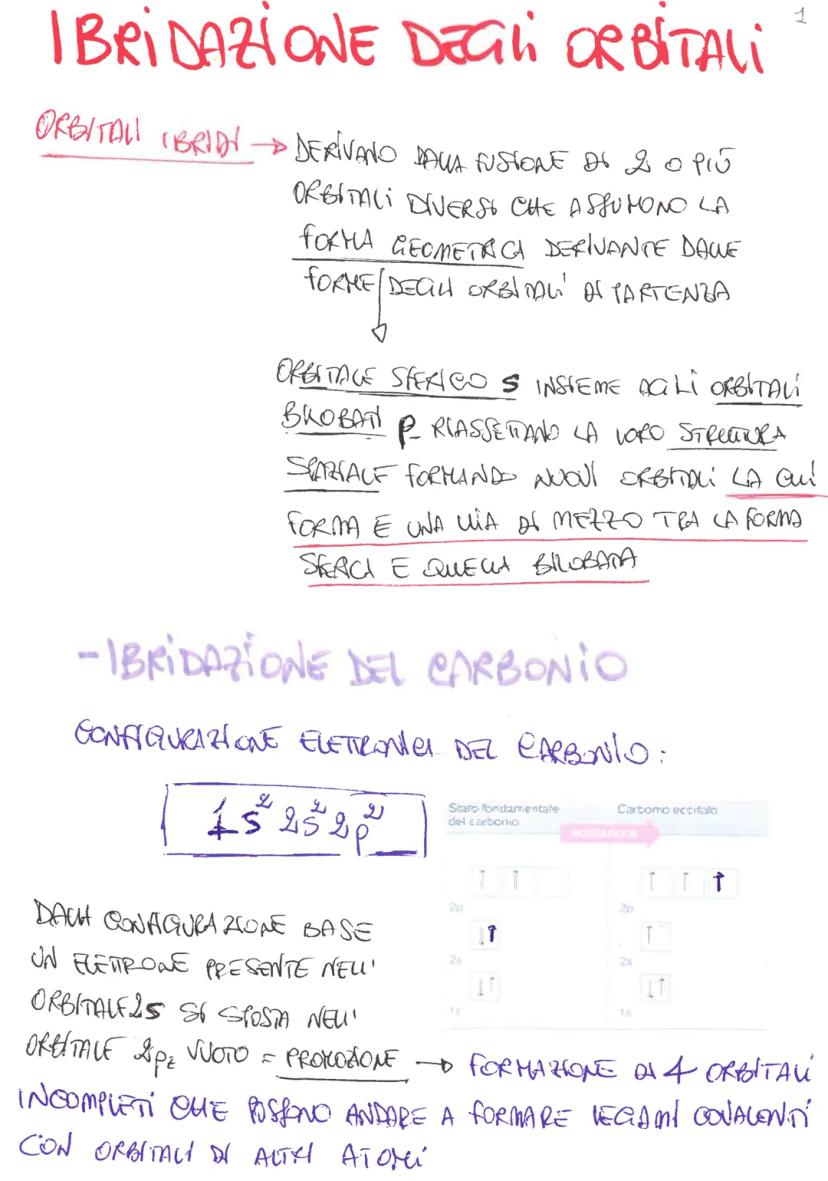 1
IBRIDAZIONE DEGLI ORBITALI
ORBITALI IBRIDI → DERIVANO DALLA FUSIONE DI 2 O PIÙ
ORBITALI DIVERSI CHE ASSUMONO LA
FORMA GEOMETRICA DERIVANTE DALLE
FORME DEGLI ORBITALI DI PARTENZA
ORBITALE SFERICO S INSIEME AGLI ORBITALI
BILOBATI P RIASSETTANO LA LORO STRUTTURA
SPAZIALE FORMANDO NUOVI ORBITALI LA CUI
FORMA E UNA VIA DI MEZZO TRA LA FORMA
SFERICA E QUELLA BILOBATA
- IBRIDAZIONE DEL CARBONIO
CONFIGURAZIONE ELETTRONICA DEL CARBONIO:
1s² 2s² 2p²
Stato fondamentale Carbonio eccitato
del carbonio
eccitazione
↑ ↑ ↑ ↑ ↑
2p 2p
↓↑ ↑
2s 2s
↓↑ ↓↑
1s 1s
DALLA CONFIGURAZIONE BASE
UN ELETTRONE PRESENTE NELL'
ORBITALE 2S SI SPOSTA NELL'
ORBITALE 2pz VUOTO = PROMOZIONE → FORMAZIONE DI 4 ORBITALI
INCOMPLETI CHE POSSONO ANDARE A FORMARE LEGAMI COVALENTI
CON ORBITALI DI ALTRI ATOMI